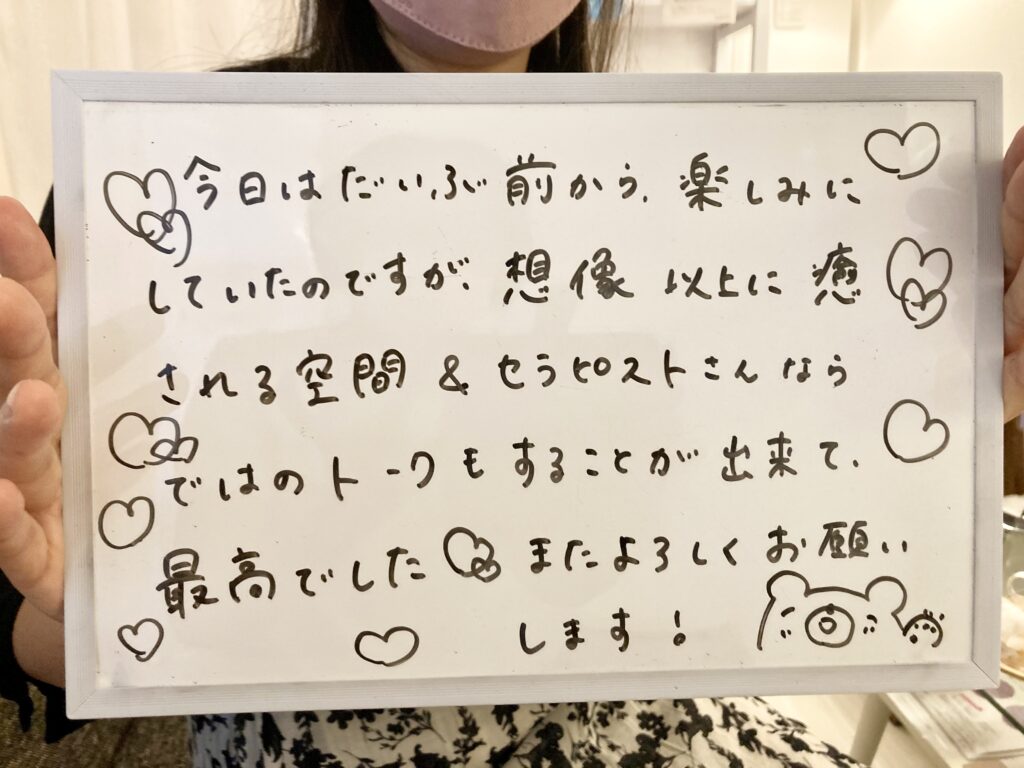 今日はだいぶ前から、楽しみに
していたのですが、想像以上に癒
される空間&セラピストさんなら
ではのトークもすることが出来て、
最高でした またよろしくお願い
します!